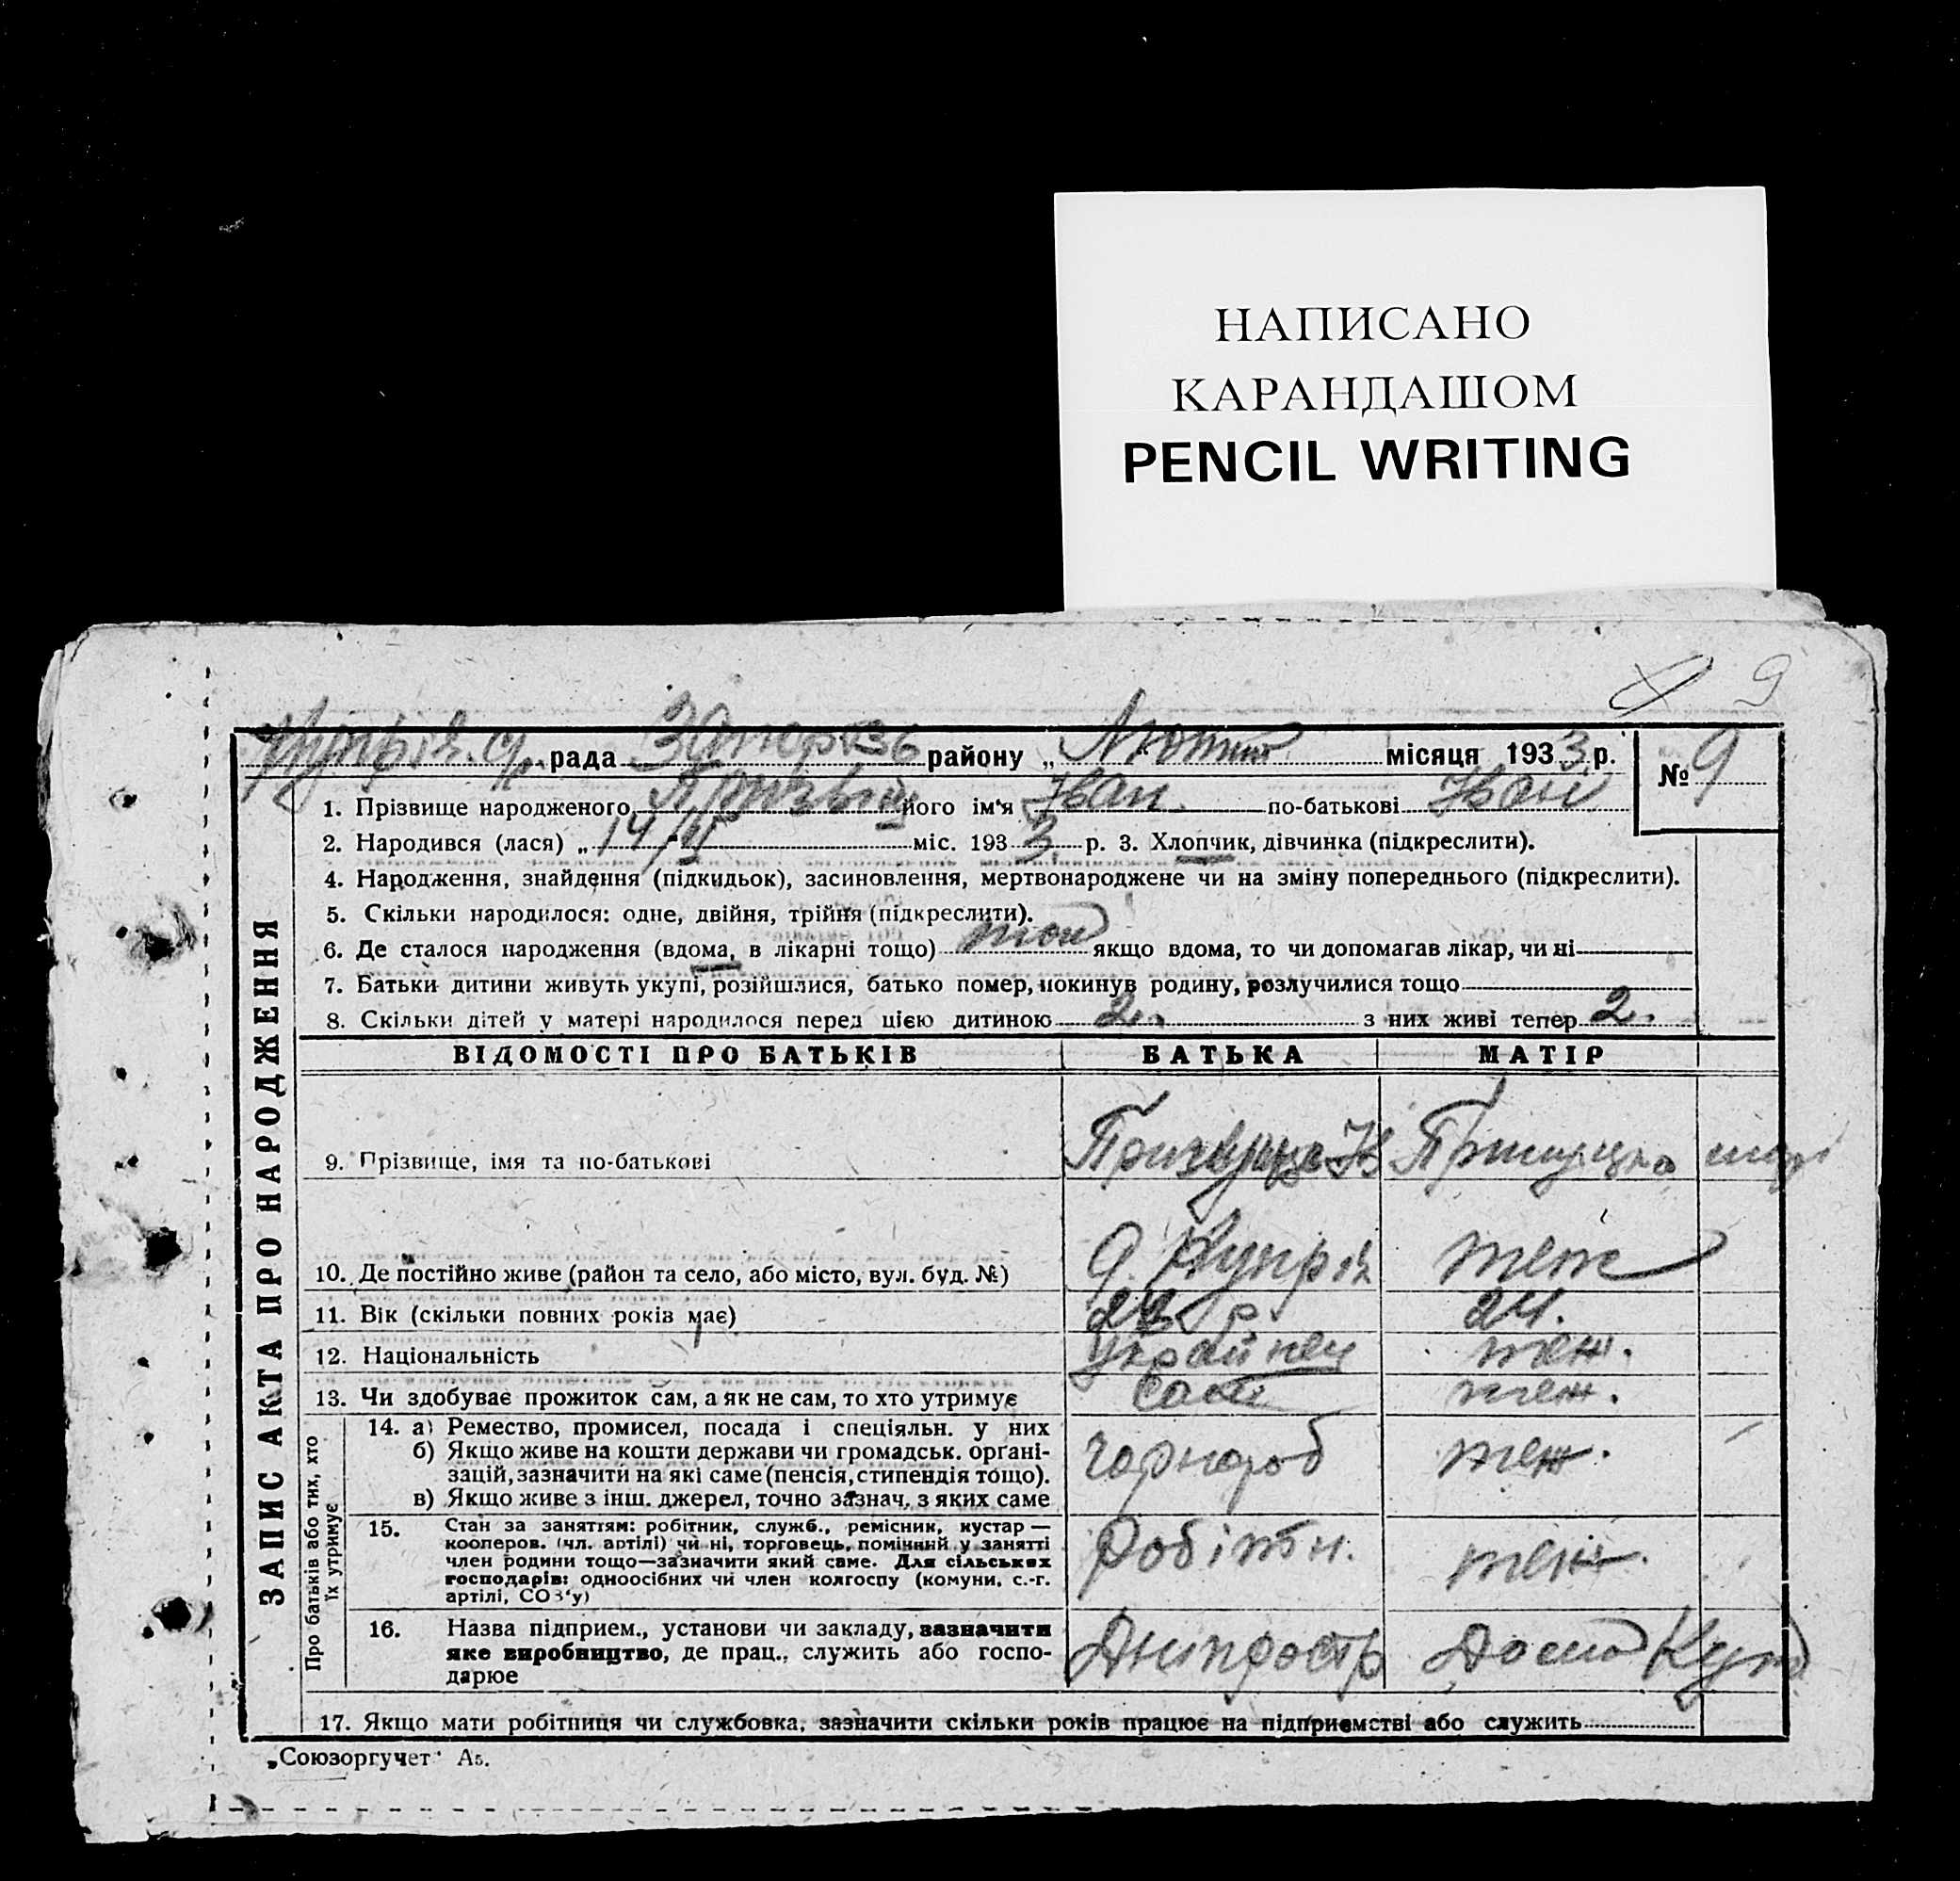 НАПИСАНО
КАРАНДАШОМ
PENCIL WRITING
9
рада район у „ Лютий місяця 1933 р. № 9
1. Прізвище народженого його ім‘я Іван по-батькові Іван
2. Народився (лася) „ 14/II міс. 1933 р. 3. Хлопчик, дівчинка (підкреслити).
4. Народження, знайдення (підкидьок), засиновлення, мертвонароджене чи на зміну попереднього (підкреслити).
5. Скільки народилося: одне, двійня, трійня (підкреслити).
6. Де сталося народження (вдома, в лікарні тощо) якщо вдома, то чи допомагав лікар, чи ні
7. Батьки дитини живуть укупі, розійшлися, батько помер, покинув родину, розлучилися тощо
8. Скільки дітей у матері народилося перед цією дитиною 2. з них живі тепер 2.
ЗАПИС АКТА ПРО НАРОДЖЕННЯ
ВІДОМОСТІ ПРО БАТЬКІВ БАТЬКА МАТІР
9. Прізвище, імя та по-батькові
10. Де постійно живе (район та село, або місто, вул. буд. №) теж
11. Вік (скільки повних років має) 24.
12. Національність Українец теж.
13. Чи здобуває прожиток сам, а як не сам, то хто утримує сам теж.
Про батьків або тих, хто їх утримує
14. а) Ремество, промисел, посада і спеціяльн. у них
б) Якщо живе на кошти держави чи громадськ. орґані-
зацій, зазначити на які саме (пенсія, стипендія тощо).
в) Якщо живе з інш. джерел, точно зазнач. з яких саме
чорнороб теж.
15. Стан за заняттям: робітник, служб., ремісник, кустар —
кооперов. (чл. артілі) чи ні, торговець, помічний у занятті
член родини тощо—зазначити який саме. Для сільських
господарів: одноосібних чи член колгоспу (комуни, с.-г.
артілі, СОЗ‘у)
робітн. теж.
16. Назва підприєм., установи чи закладу, зазначити
яке виробництво, де прац., служить або госпо-
дарює
Дніпростр
17. Якщо мати робітниця чи службовка, зазначити скільки років працює на підприємстві або служить
„Союзоргучет“ А5.